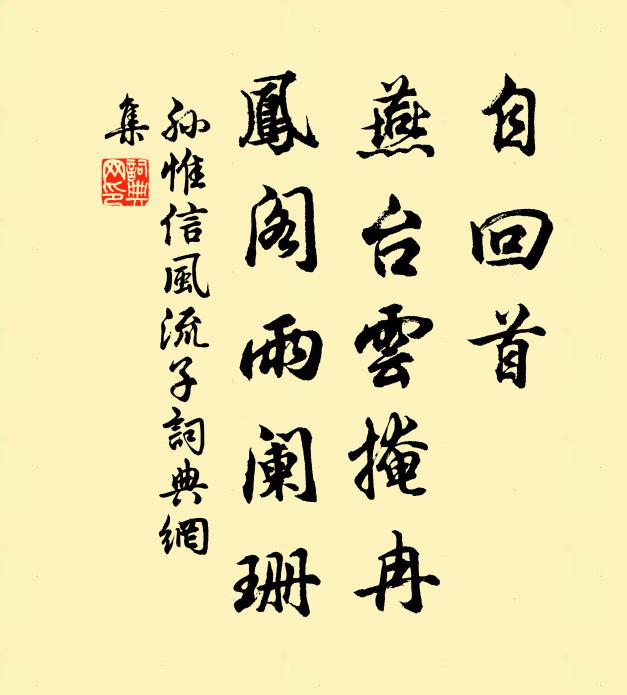 自回首
燕台雲掩冉
鳳阁雨阑珊
孙惟信風流子詞典網
集
詞典
网印